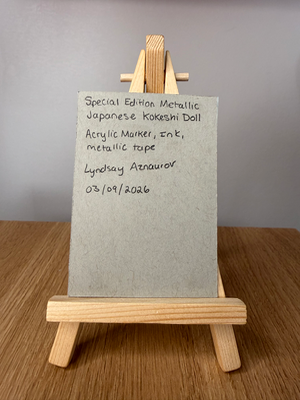 Special Edition Metallic
Japanese Kokeshi Doll
Acrylic Marker, Ink,
metallic tape
Lyndsay Aznaurov
03/09/2026